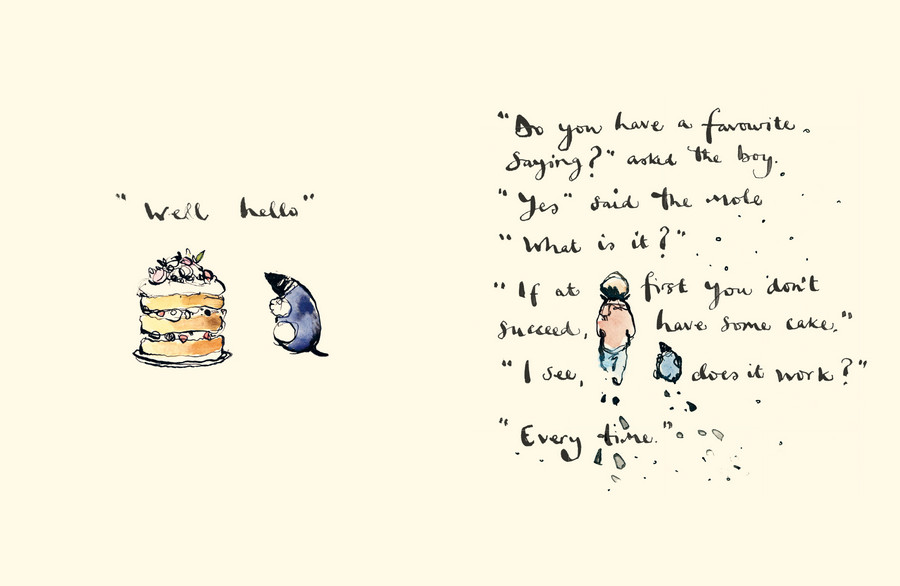 "Well hello"
"Do you have a favourite
saying?" asked the boy.
"Yes" said the mole
"What is it?"
"If at first you don't
succeed, have some cake."
"I see, does it work?"
"Every time."